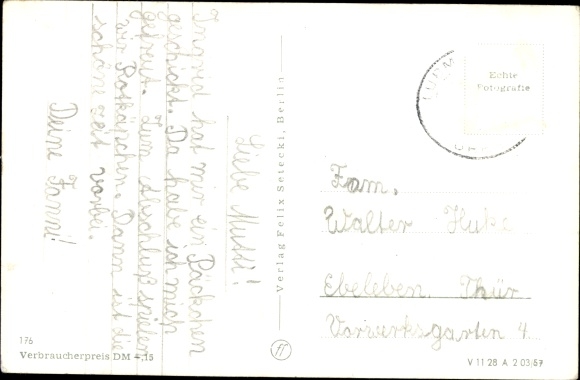 Liebe Mutti!
Ingrid hat mir ein Päckchen
geschickt. Da habe ich mich
gefreut. Zum Abschluß spielen
wir Rotkäpchen. Dann ist die
schöne zeit vorbei.
Deine Fanni!
176
Verbraucherpreis DM -,15
Verlag Felix Setecki, Berlin
Echte
Fotografie
Fam.
Walter Huke
Ebeleben. Thür
Vorwerksgarten 4.
V 11 28 A 2 03/67